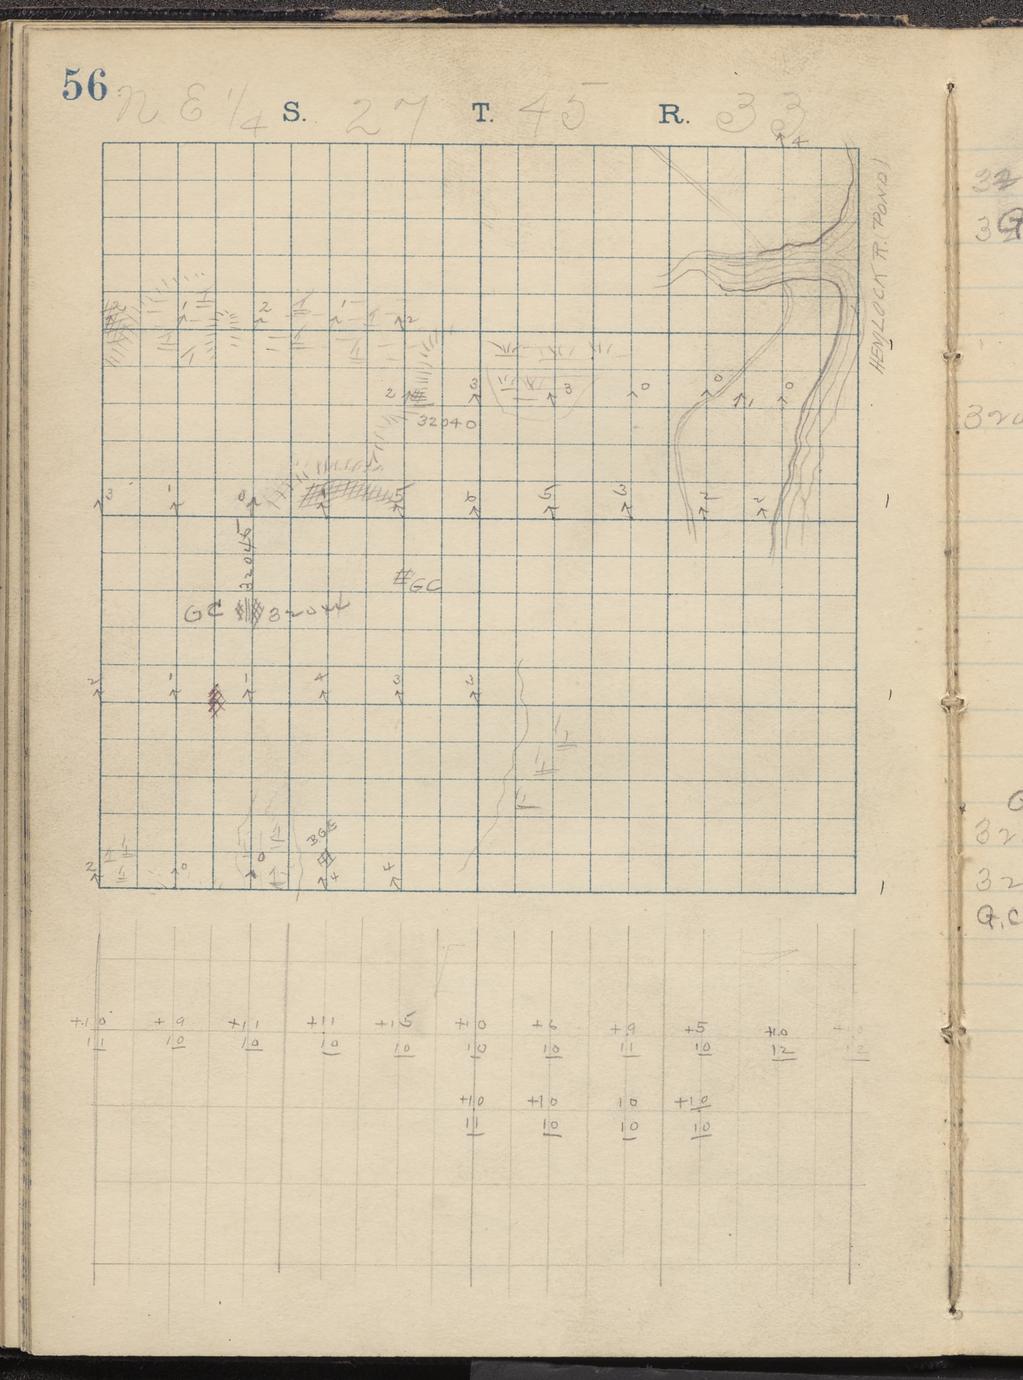 56 N E 1/4 S. 27 T. 45 R. 33
4
HEMLOCK R. (POND)
2 1 2 1 2
2 3 3 0 0 1 0
32040
3 1 0 5 6 5 3 2 2
32045
GC
GC 32044
2 1 1 4 3 2
BGS
2 0 0 4 4
+10 +9 +11 +11 +15 +10 +6 +9 +5 +10
11 10 10 10 10 10 10 11 10 12 12
+10 +10 10 +10
11 10 10 10
32
3
320
G
32
32
G.C